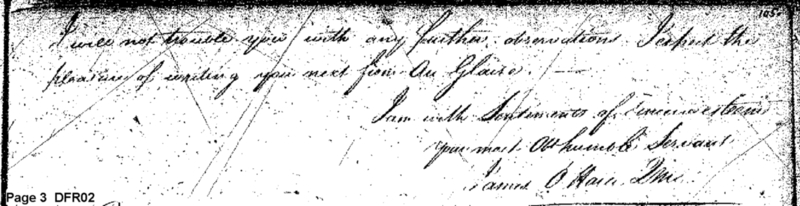 105
I will not trouble you with any further observations I expect the
pleasure of writing you next from Au Glaise. —
I am with Sentiments of Sincere esteem
your most Obt humble Servant
James O Hara QMG
Page 3 DFR02